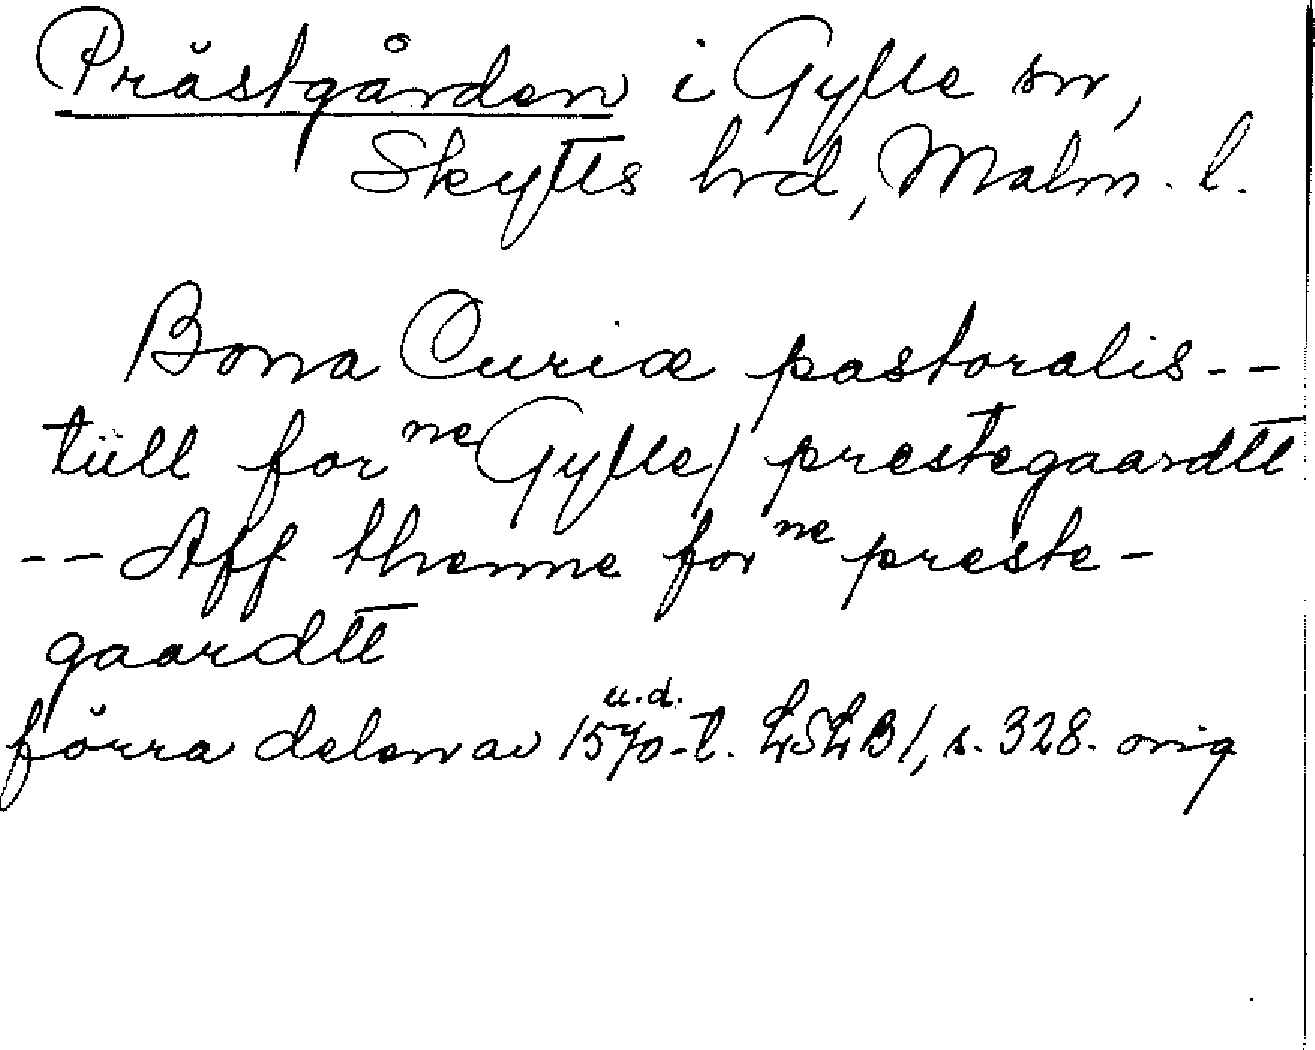 Prästgården i Gylle sn,
Skytts hrd, Malm. l.
Bona Curiæ pastoralis--
tüll for ne Gylle/ prestegaardtt
-- Aff thenne for ne preste-
gaardtt
u.d.
förra delen av 1570-t. LSLB1, s. 328. orig